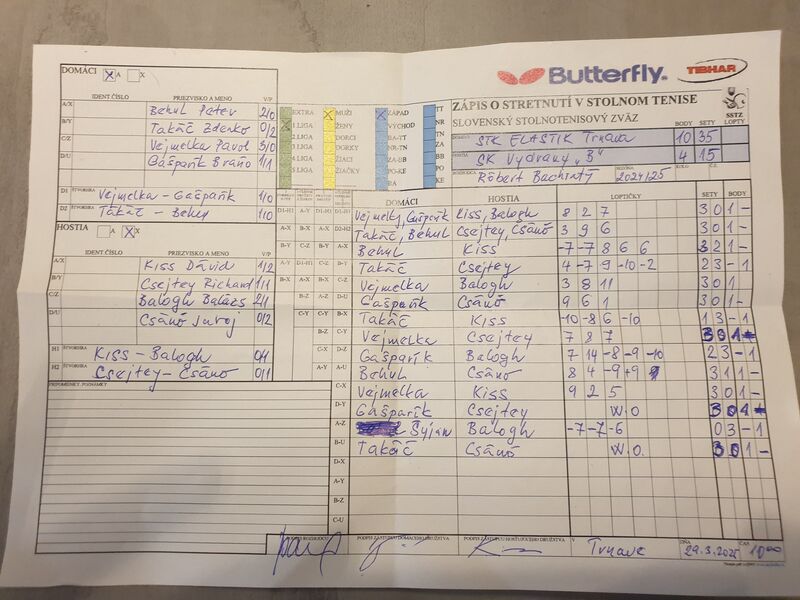 Butterfly
TIBHAR
DOMÁCI X A X
IDENT.ČÍSLO PRIEZVISKO A MENO V/P
A/X Behul Peter 2/0
B/Y Takáč Zdenko 0/2
C/Z Vejmelka Pavol 3/0
D/U Gašparík Braňo 1/1
D1 ŠTVORHRA Vejmelka - Gašparík 1/0
D2 ŠTVORHRA Takáč - Behul 1/0
EXTRA
1.LIGA
2.LIGA
3.LIGA
4.LIGA
5.LIGA
MUŽI
ŽENY
DORCI
DORKY
ŽIACI
ŽIAČKY
ZÁPAD
VÝCHOD
BA-TT
NR-TN
ZA-BB
PO-KE
BA
TT
NR
TN
ZA
BB
PO
KE
ZÁPIS O STRETNUTÍ V STOLNOM TENISE
SLOVENSKÝ STOLNOTENISOVÝ ZVÄZ
SSTZ
BODY SETY LOPTY
DOMÁCI STK ELASTIK Trnava 10 35
HOSTIA ŠK Vydrany "B" 4 15
ROZHODCA SEZÓNY KOLO Č.Z.
Róbert Bachratý 2024/25
HOSTIA A X X
IDENT.ČÍSLO PRIEZVISKO A MENO V/P
A/X Kiss Dávid 1/2
B/Y Csejtey Richard 1/1
C/Z Balogh Balázs 2/1
D/U Csánó Juroj 0/2
H1 ŠTVORHRA Kiss - Balogh 0/1
H2 ŠTVORHRA Csejtey - Csánó 0/1
PRIPOMIENKY, POZNÁMKY
DOMÁCI HOSTIA LOPTIČKY SETY BODY
Vejmelka, Gašparík Kiss, Balogh 8 2 7 3 0 1 -
Takáč, Behul Csejtey, Csánó 3 9 6 3 0 1 -
Behul Kiss -7 -7 8 6 6 3 2 1 -
Takáč Csejtey 4 -7 9 -10 -2 2 3 - 1
Vejmelka Balogh 3 8 11 3 0 1 -
Gašparík Csánó 9 6 1 3 0 1 -
Takáč Kiss -10 -8 6 -10 1 3 - 1
Vejmelka Csejtey 7 8 7 3 0 1 -
Gašparík Balogh 7 14 -8 -9 -10 2 3 - 1
Behul Csánó 8 4 -9 +9 3 1 1 -
C-X Vejmelka Kiss 9 2 5 3 0 1 -
D-Y Gašparík Csejtey W.O 3 0 1 -
A-Z Šyjan Balogh -7 -7 -6 0 3 - 1
B-U Takáč Csánó W.O. 3 0 1 -
D-X
A-Y
B-Z
C-U
PODPIS ROZHODCU
PODPIS ZÁSTUPCU DOMÁCEHO DRUŽSTVA
PODPIS ZÁSTUPCU HOSŤUJÚCEHO DRUŽSTVA
V Trnave DŇA 29.3.2025 ČAS 10:00